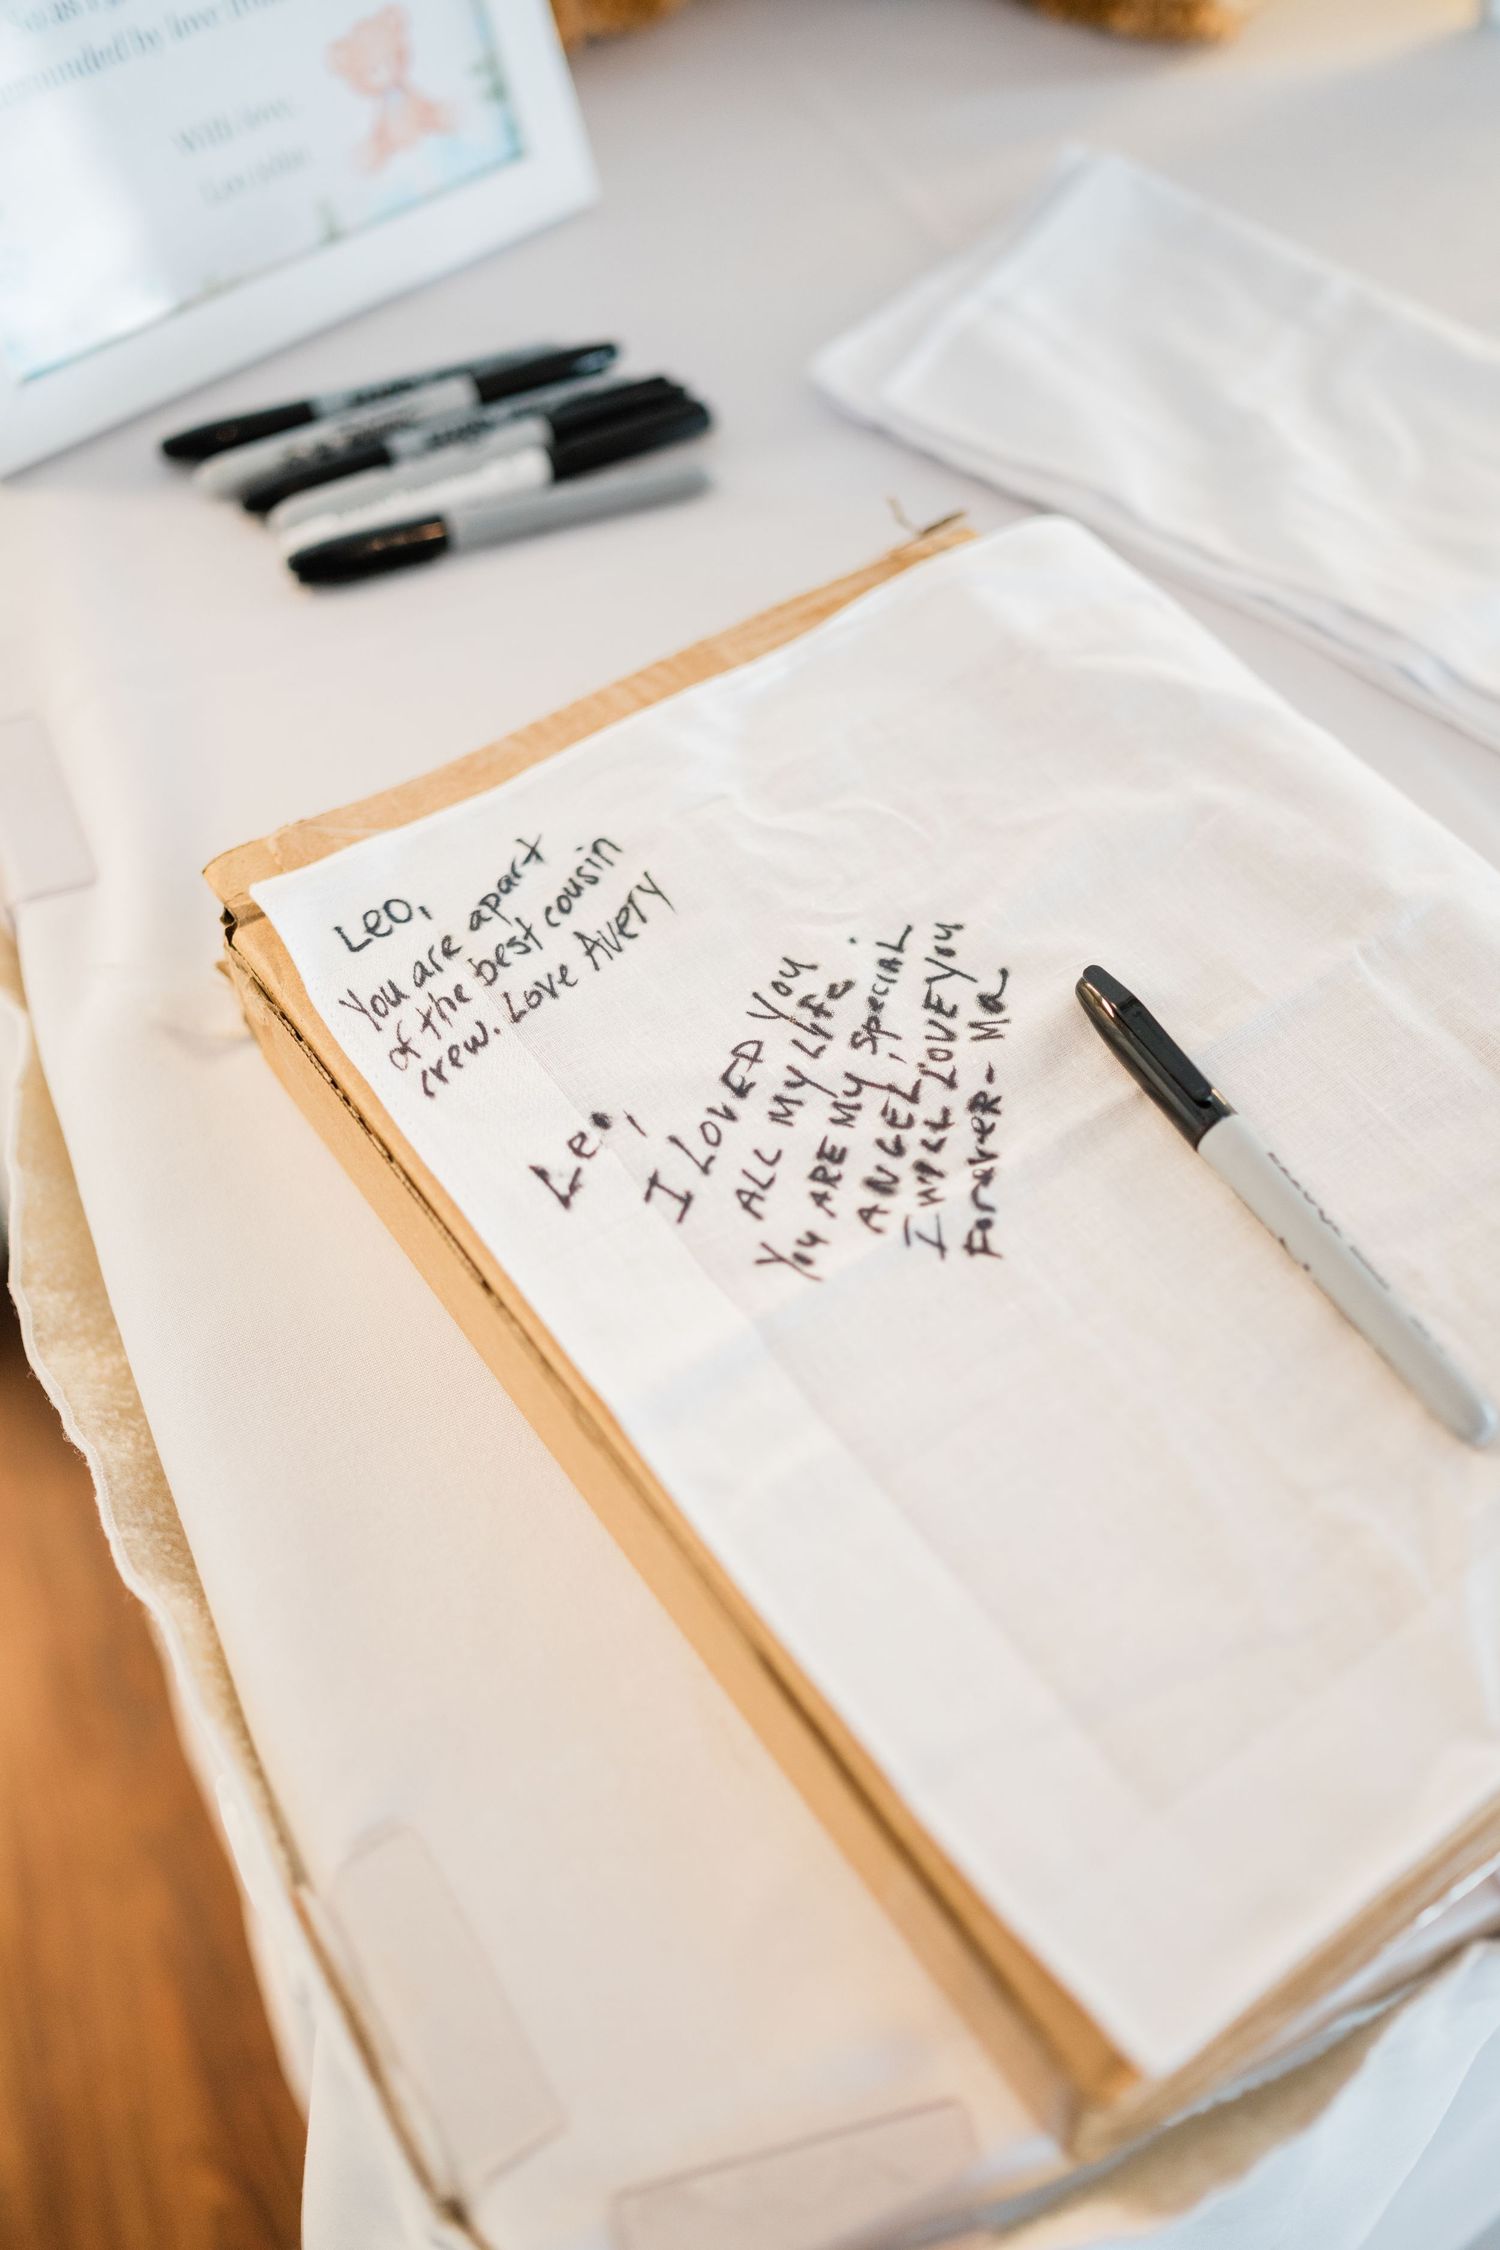 surrounded by love
With love,
Leo,
You are apart
of the best cousin
crew. Love Avery
Leo,
I LOVED YOU
ALL MY Life.
You ARE MY SPECIAL
ANGEL, 
I WILL LOVE YOU
Forever - Ma